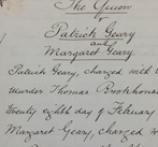 The Queen
v
Patrick Geary
and
Margaret Geary.
Patrick Geary, charged with
murder Thomas Brookhouse
Twenty eighth day of February
Margaret Geary, charged